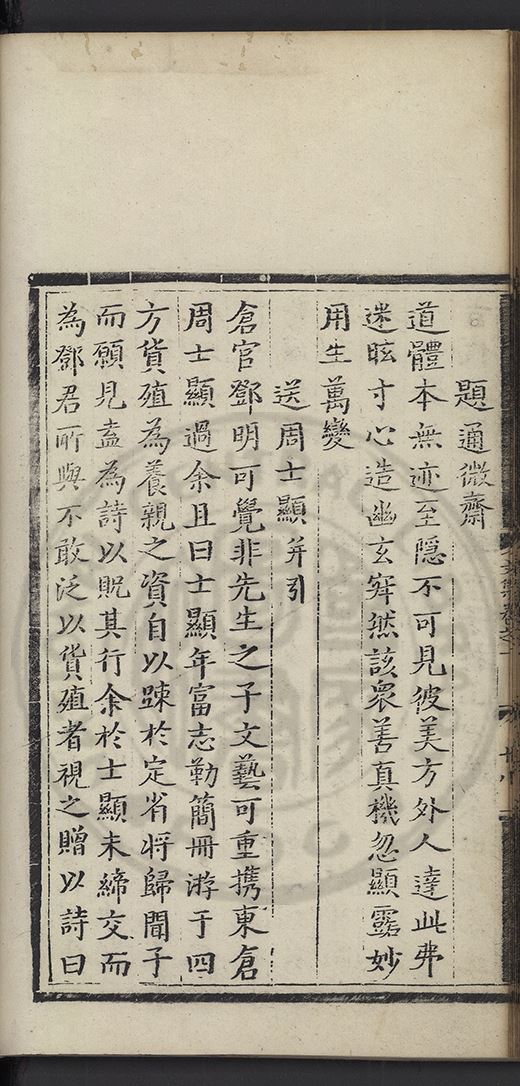 題通微齋
道體本無迹至隱不可見彼美方外人達此弗
迷眩寸心造幽玄窅然該衆善真機忽顯露妙
用生萬變
送周士顯并引
倉官鄧明可覺非先生之子文藝可重携東倉
周士顯過余且曰士顯年富志勤簡冊游于四
方貨殖為養親之資自以踈於定省将歸聞子
而願見盍為詩以貺其行余於士顯未締交而
為鄧君所與不敢泛以貨殖者視之贈以詩曰